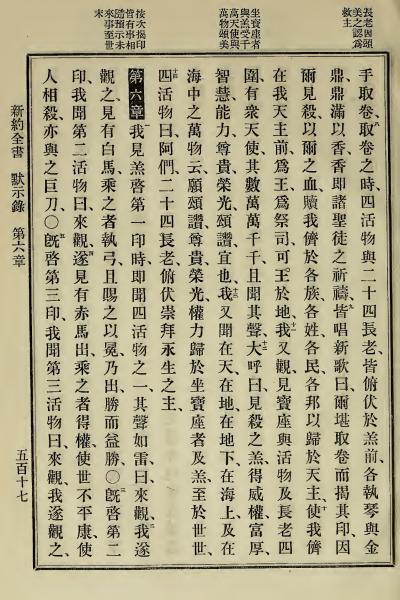 長老因頌
美之認爲
救主
坐寶座者
與羔受千
萬天使與
萬物頌美
按次揭印
皆有事相
隨預示未
來事至世
末
手取卷、取卷之時、四活物與二十四長老、皆俯伏於羔前、各執琴與金
鼎、鼎滿以香、香即諸聖徒之祈禱、皆唱新歌曰、爾堪取卷而揭其印、因
爾見殺、以爾之血贖我儕於各族各姓各民各邦、以歸於天主、使我儕
在我天主前爲王爲祭司、可王於地、我又觀見寶座與活物及長老四
圍有衆天使、其數萬萬千千、且聞其聲、大呼曰、見殺之羔、得威權富厚
智慧能力尊貴榮光頌讚、宜也、我又聞在天在地在地下在海上、及在
海中之萬物云、願頌讚尊貴榮光權力、歸於坐寶座者及羔、至於世世、
四活物曰、阿們、二十四長老俯伏崇拜永生之主、
第六章 我見羔啓第一印時、即聞四活物之一、其聲如雷、曰、來觀、我遂
觀之、見有白馬、乘之者執弓、且賜之以冕、乃出、勝而益勝、○旣啓第二
印、我聞第二活物曰、來觀、遂見有赤馬出、乘之者得權、使世不平康、使
人相殺、亦與之巨刀、○旣啓第三印、我聞第三活物曰、來觀、我遂觀之、
新約全書 默示錄 第六章 五百十七